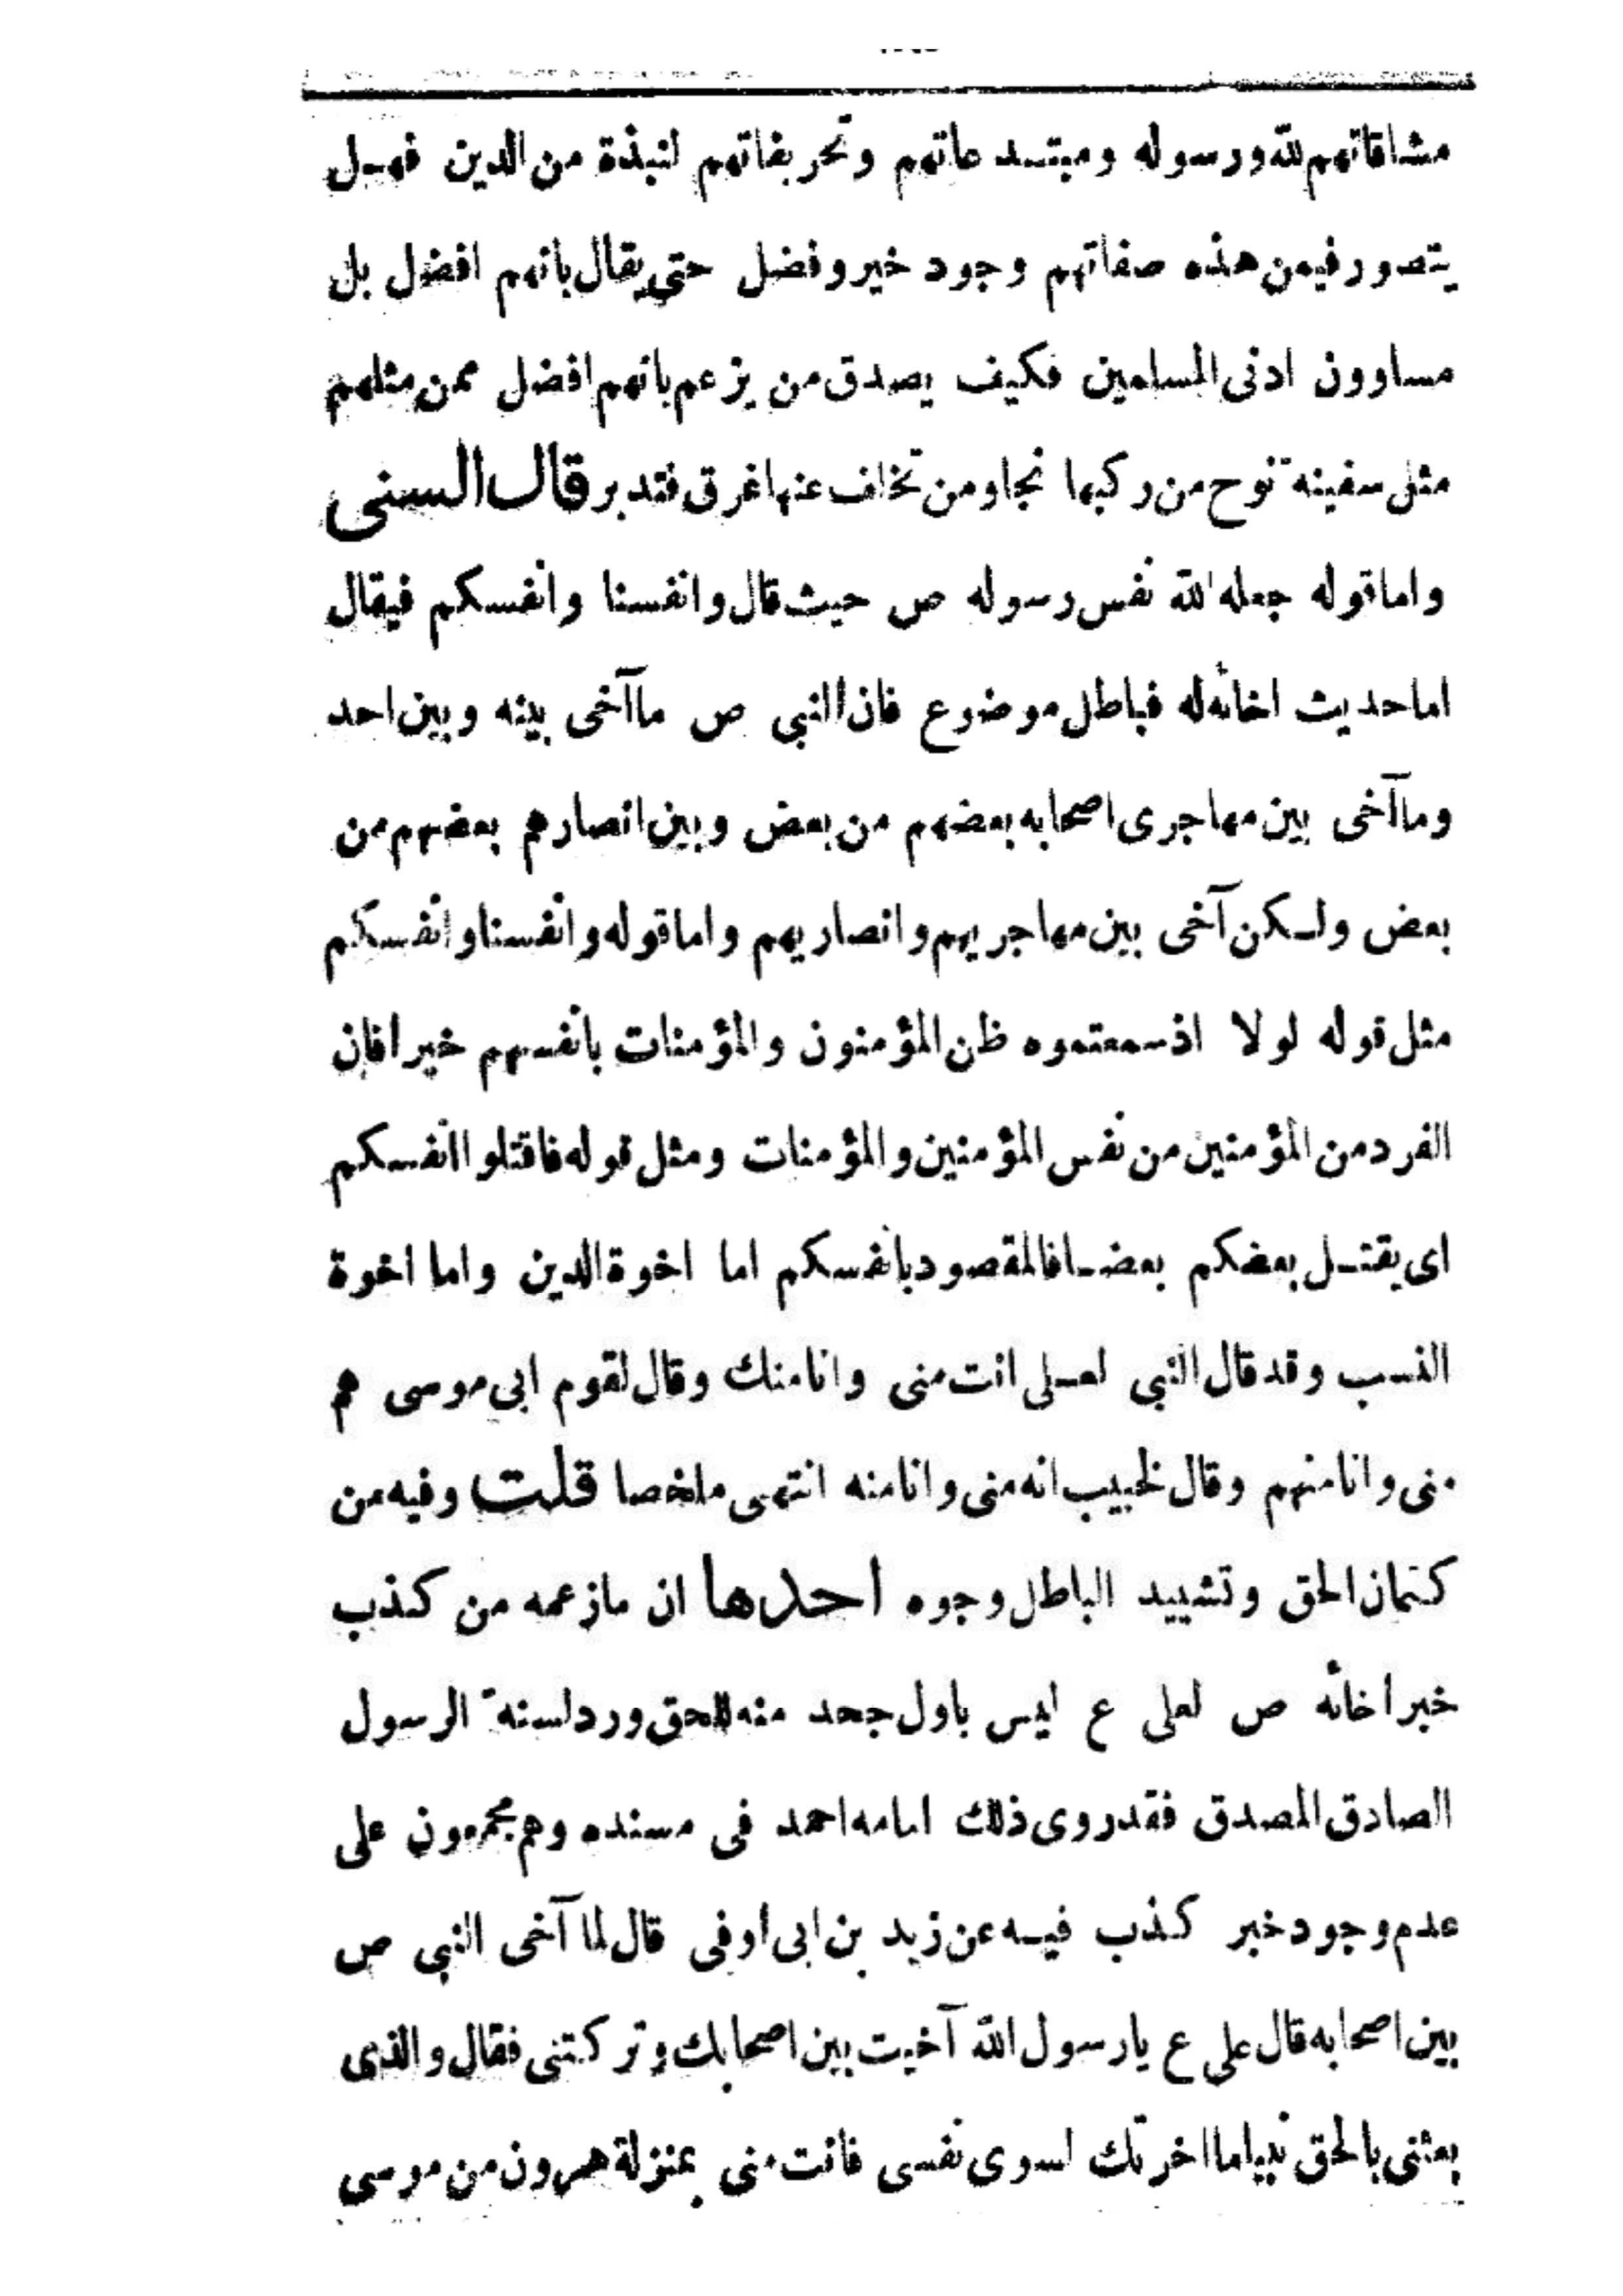 مشاقاتهم لله ورسوله ومبتدعاتهم وتحريفاتهم لنبذة من الدين فهل
يتصور فيمن هذه صفاتهم وجود خير وفضل حتى يقال بانهم افضل بل
مساوون ادنى المسلمين فكيف يصدق من يزعم بانهم افضل ممن مثلهم
مثل سفينة نوح من ركبها نجا ومن تخلف عنها غرق فتدبر قال السني
واما قوله جعله الله نفس رسوله ص حيث قال وانفسنا وانفسكم فيقال
اما حديث اخائه له فباطل موضوع فان النبي ص ما آخى بينه وبين احد
وما آخى بين مهاجرى اصحابه بعضهم من بعض وبين انصارهم بعضهم من
بعض ولكن آخى بين مهاجريهم وانصاريهم واما قوله وانفسنا وانفسكم
مثل قوله لولا اذ سمعتموه ظن المؤمنون والمؤمنات بانفسهم خيرا فان
الفرد من المؤمنين من نفس المؤمنين والمؤمنات ومثل قوله فاقتلوا انفسكم
اى يقتل بعضكم بعضا فالمقصود بانفسكم اما اخوة الدين واما اخوة
النسب وقد قال النبي لعلى انت منى وانا منك وقال لقوم ابى موسى هم
منى وانا منهم وقال لخبيب انه منى وانا منه انتهى ملخصا قلت وفيه من
كتمان الحق وتشييد الباطل وجوه احدها ان ما زعمه من كذب
خبر اخائه ص لعلى ع ليس باول جحد منه للحق ورد لسنة الرسول
الصادق المصدق فقد روى ذلك امامه احمد فى مسنده وهم مجمعون على
عدم وجود خبر كذب فيه عن زيد بن ابى اوفى قال لما آخى النبي ص
بين اصحابه قال على ع يا رسول الله آخيت بين اصحابك وتركتنى فقال والذى
بعثنى بالحق نبيا ما اخرتك لسوى نفسى فانت منى بمنزلة هرون من موسى